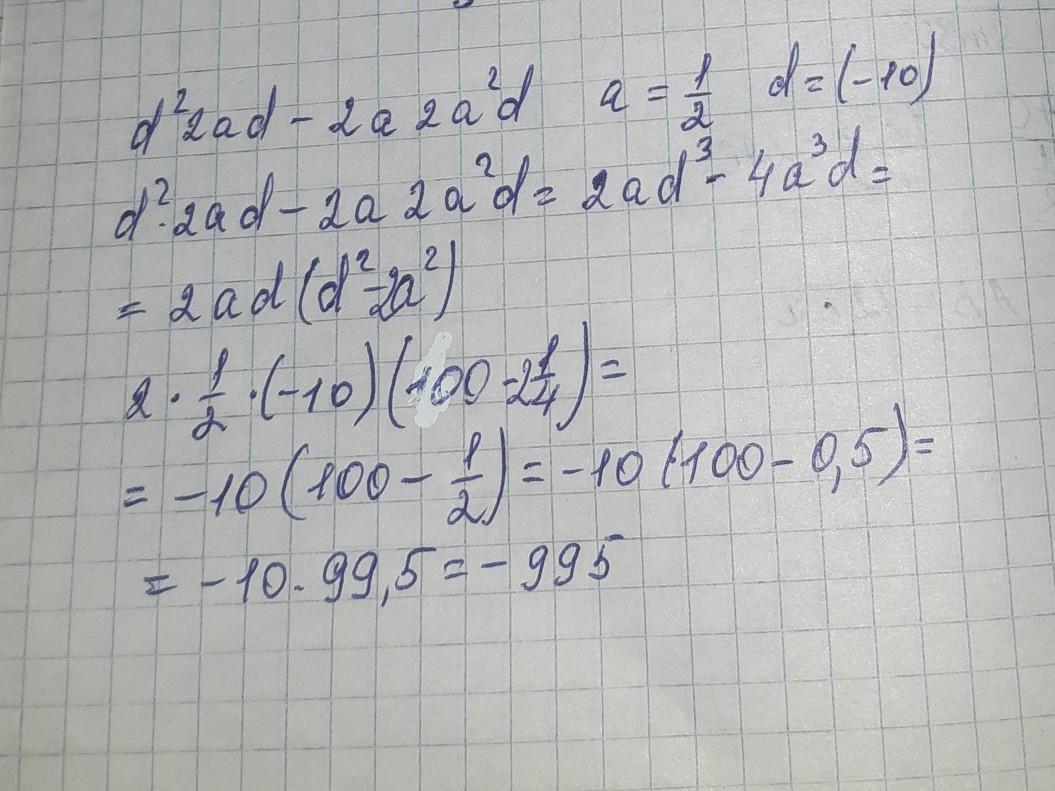 d²2ad - 2a 2a²d a = 1/2 d = (-10)
d²·2ad - 2a 2a²d = 2ad³ - 4a³d =
= 2ad(d² - 2a²)
2 · 1/2 · (-10)(100 - 2 1/4) =
= -10(100 - 1/2) = -10(100 - 0,5) =
= -10 · 99,5 = -995